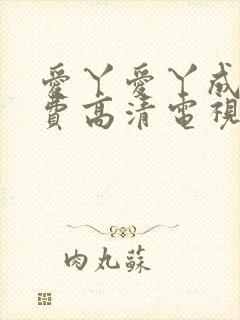 愛丫愛丫成
費高清電視
肉丸蘇